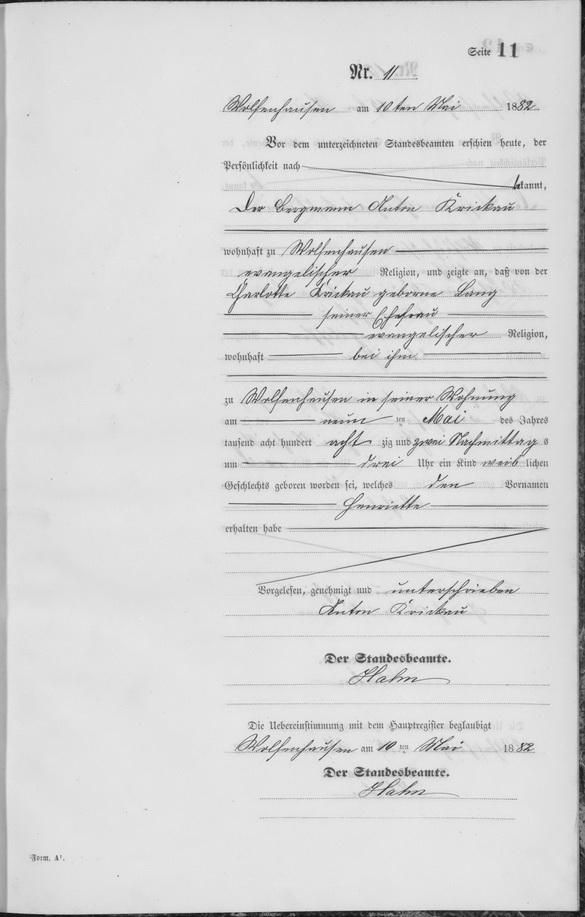 Seite 11
Nr. 11
Wolfenhausen am 10ten Mai 1882
Vor dem unterzeichneten Standesbeamten erschien heute, der
Persönlichkeit nach
bekannt,
Der Bergmann Anton Krickau
wohnhaft zu Wolfenhausen
evangelischer Religion, und zeigte an, daß von der
Charlotte Krickau geborne Lang
seiner Ehefrau
evangelischer Religion,
wohnhaft bei ihm
zu Wolfenhausen in seiner Wohnung
am neun ten Mai des Jahres
tausend acht hundert acht zig und zwei Nachmittag s
um drei Uhr ein Kind weib lichen
Geschlechts geboren worden sei, welches den Vornamen
Henriette
erhalten habe
Vorgelesen, genehmigt und unterschrieben
Anton Krickau
Der Standesbeamte.
Hahn
Die Uebereinstimmung mit dem Hauptregister beglaubigt
Wolfenhausen am 10 ten Mai 1882
Der Standesbeamte.
Hahn
Form. A¹.